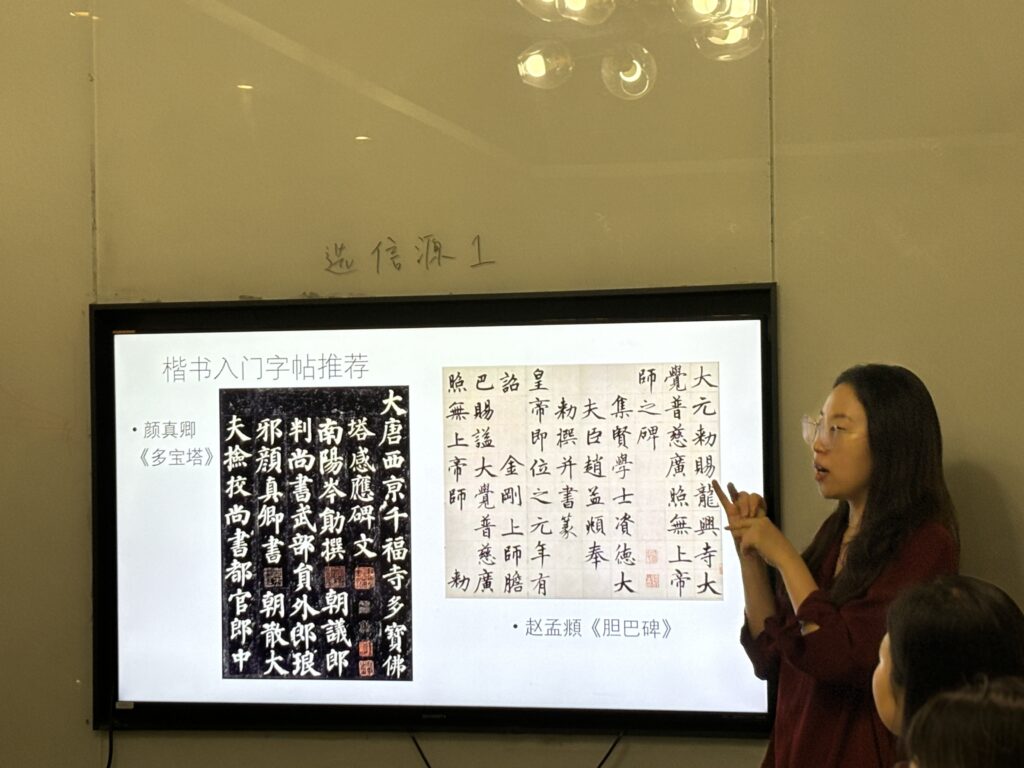 选信源1
楷书入门字帖推荐
• 颜真卿
《多宝塔》
大唐西京千福寺多寶佛
塔感應碑文
南陽岑勛撰 朝議郎
判尚書武部員外郎琅
邪顏真卿書 朝散大
夫撿挍尚書都官郎中
大元勑賜龍興寺大
覺普慈廣照無上帝
師之碑
集賢學士資德大
夫臣趙孟頫奉
勑撰并書篆
皇帝即位之元年有
詔 金剛上師膽
巴賜謚大覺普慈廣
照無上帝師 勑
• 赵孟頫《胆巴碑》